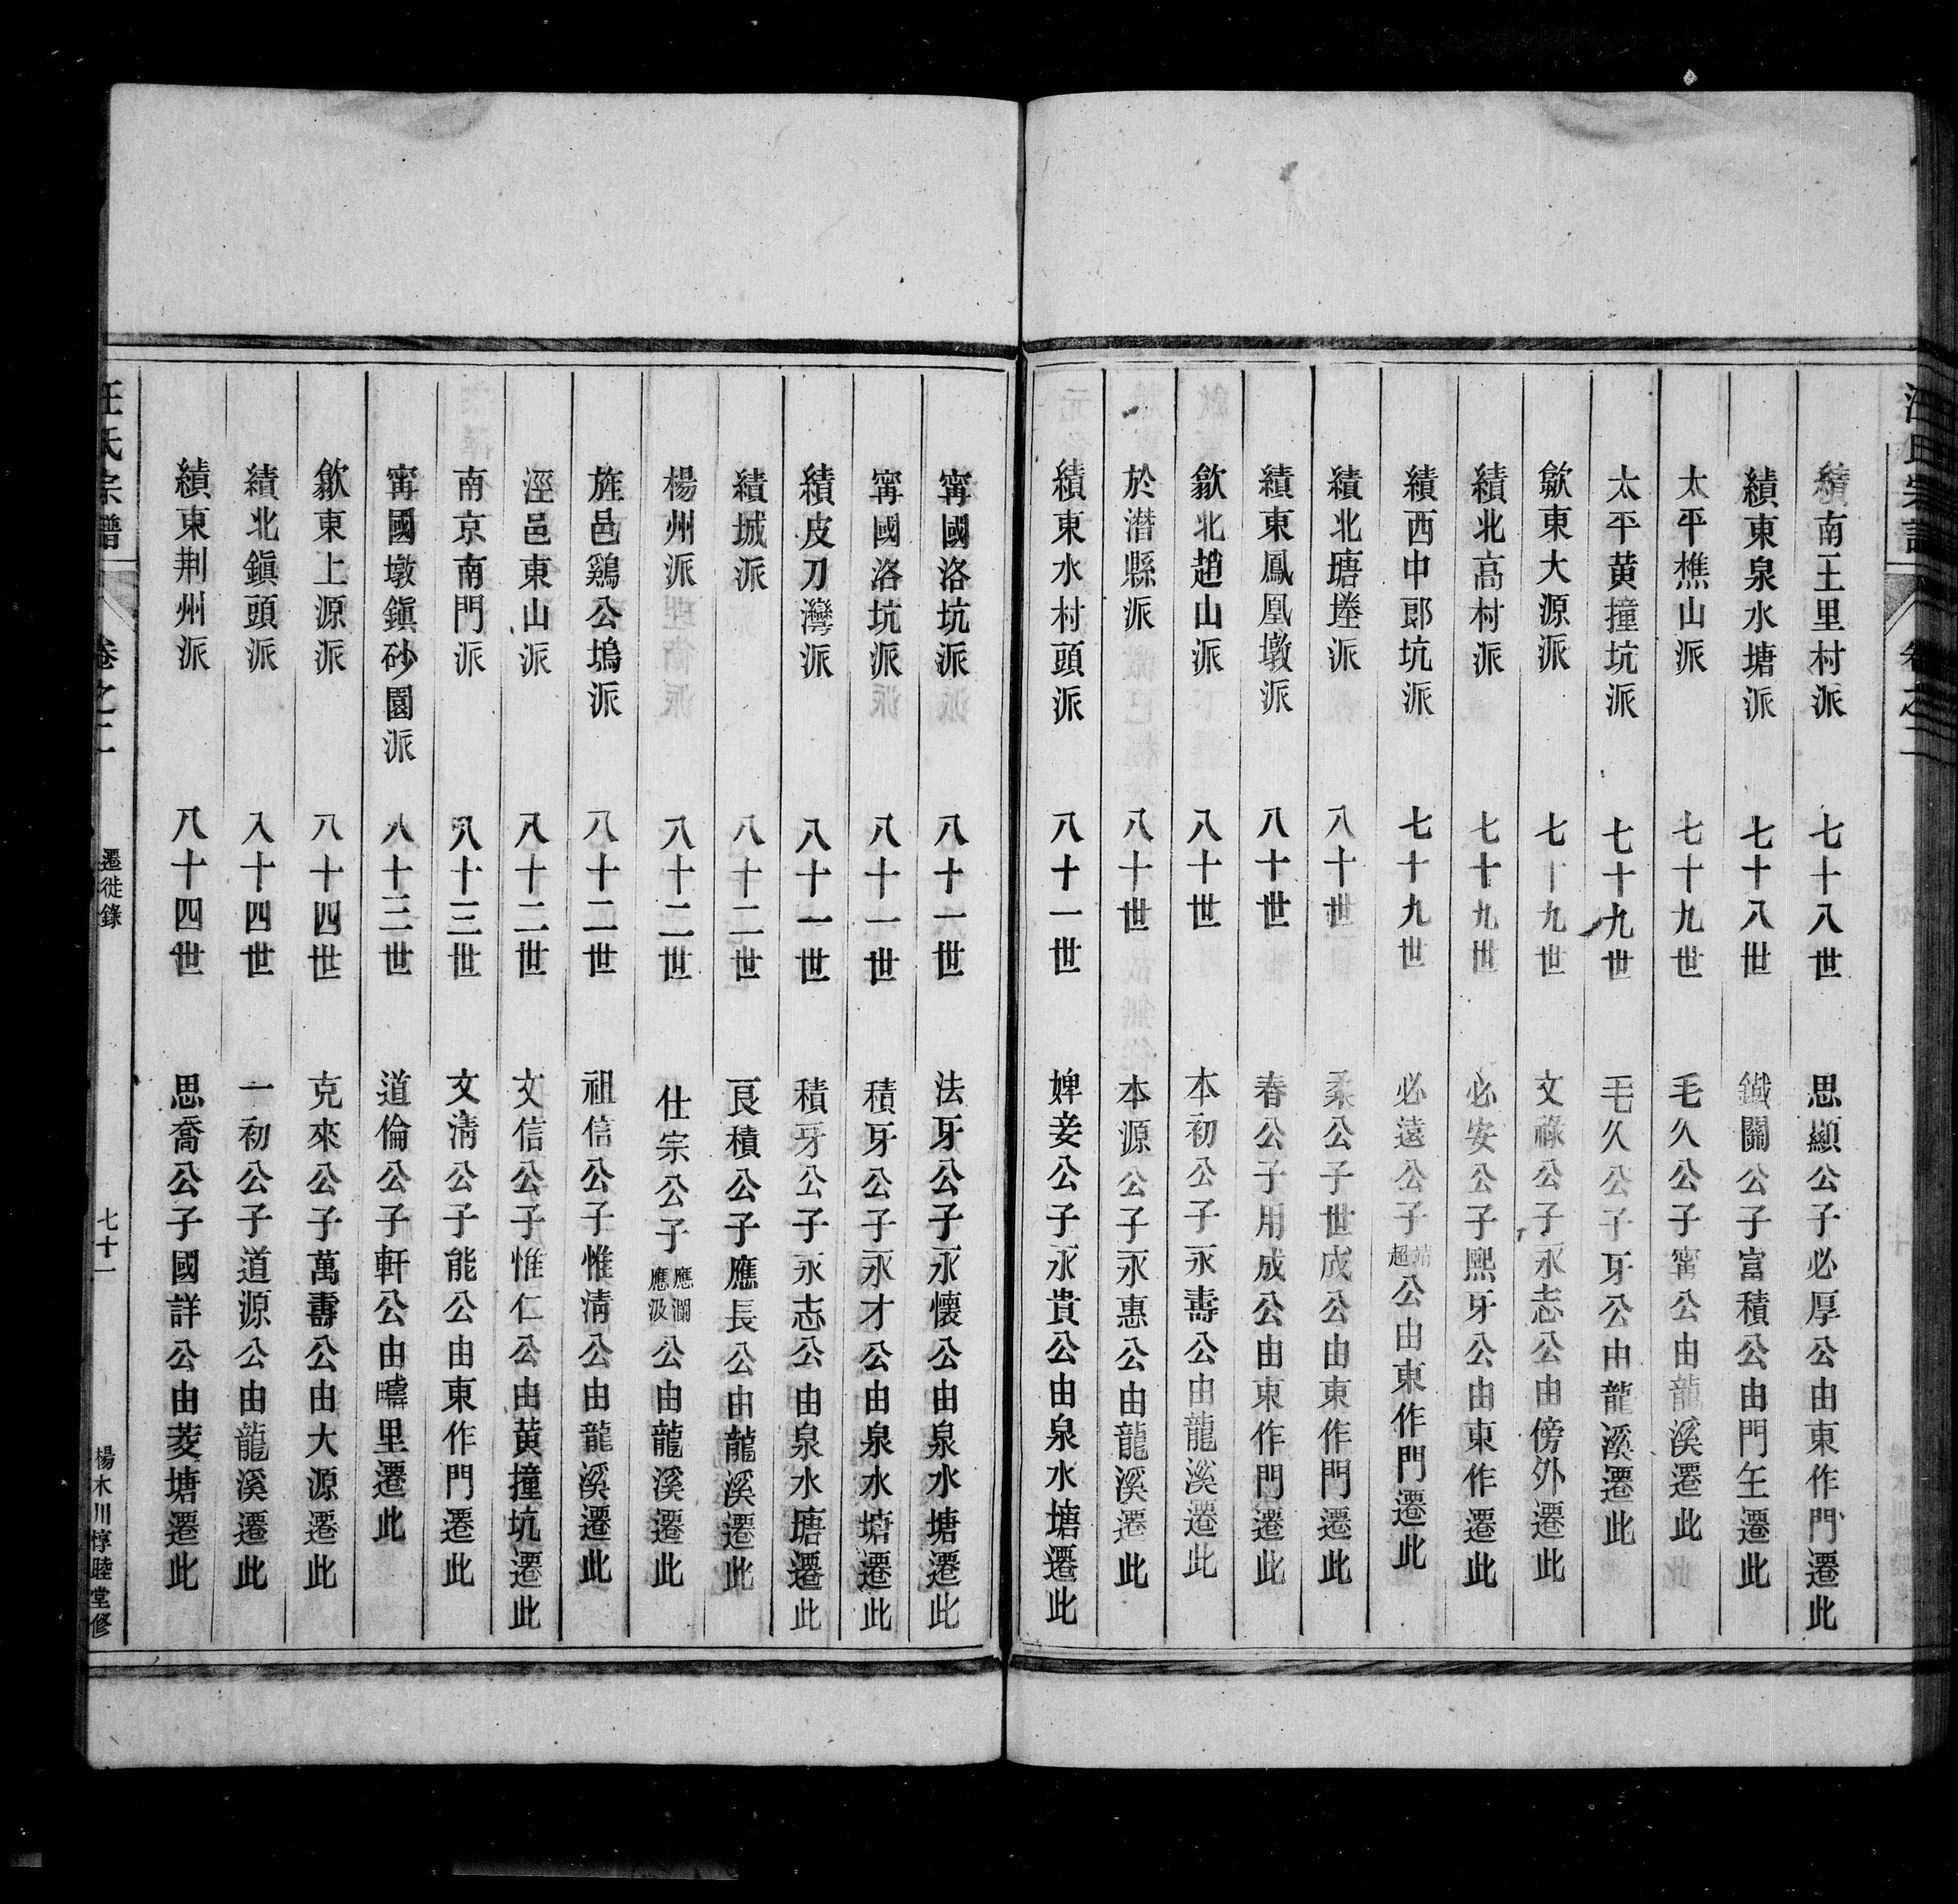 汪氏宗譜 卷之二
績南王里村派 七十八世 思顯公子必厚公由東作門遷此
績東泉水塘派 七十八世 鐵關公子富積公由門玍遷此
太平樵山派 七十九世 毛久公子甯公由龍溪遷此
太平黄撞坑派 七十九世 毛久公子牙公由龍溪遷此
歙東大源派 七十九世 文祿公子永志公由傍外遷此
績北高村派 七十九世 必安公子熙牙公由東作遷此
績西中郎坑派 七十九世 必遠公子超公由東作門遷此
績北塘塝派 八十世 柔公子世成公由東作門遷此
績東鳳凰墩派 八十世 春公子用成公由東作門遷此
歙北趙山派 八十世 本初公子永壽公由龍溪遷此
於潛縣派 八十世 本源公子永惠公由龍溪遷此
績東水村頭派 八十一世 婢妾公子永貴公由泉水塘遷此
甯國洛坑派 八十一世 法牙公子永懷公由泉水塘遷此
甯國洛坑派 八十一世 積牙公子永才公由泉水塘遷此
績皮刀灣派 八十一世 積牙公子永志公由泉水塘遷此
績城派 八十二世 良積公子應長公由龍溪遷此
楊州派 八十二世 仕宗公子應瀾應汲公由龍溪遷此
旌邑鷄公塢派 八十二世 祖信公子惟清公由龍溪遷此
涇邑東山派 八十二世 文信公子惟仁公由黄撞坑遷此
南京南門派 八十三世 文清公子能公由東作門遷此
甯國墩鎮砂園派 八十三世 道倫公子軒公由疇里遷此
歙東上源派 八十四世 克來公子萬壽公由大源遷此
績北鎮頭派 八十四世 一初公子道源公由龍溪遷此
績東荆州派 八十四世 思喬公子國詳公由菱塘遷此
汪氏宗譜 卷之二 遷徙錄 七十一 楊木川惇睦堂修